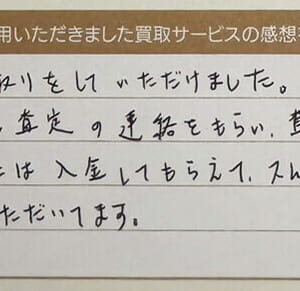 用いただきました買取サービスの感想
取りをしていただけました。
査定の連絡をもらい、
には入金してもらえて、スん
ただいてます。